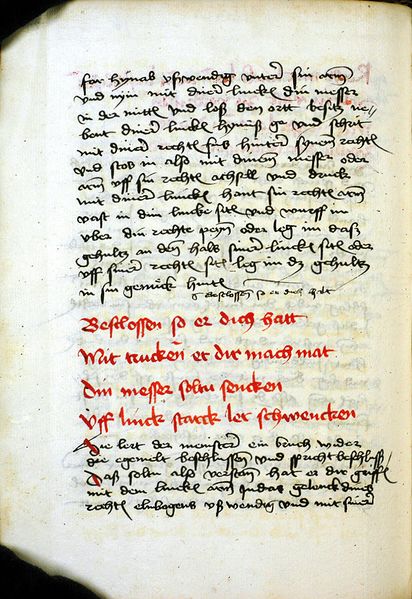 for hynab vßwendig unter sin arm
und nym mit diner lincken din messer
in der mitt und laß den ortt besitz ne=
bent diner lincken hyniß ge und schrit
mit diner rechten fuß hinter synen rechten
und stos in also mit dinem messer oder
arm uff sin rechte achsell und druck
mit diner lincken hant sin rechten arm
vast in din lincke sitē und wurff in
uber din rechte peyn oder leg im daß
gehultz an den hals siner lincken sitē oder
uff siner rechten sitē leg im dz gehultz
in sin genick hinden
Beslossen so er dich hatt
Beslossen so er dich hatt
Mit trucken er dir mach mat
Din messer soltu sencken
Uff linck starck ler schwencken
Hie lert der meinster ein bruch wider
die egemelt beschlussen und spricht beschluß
Daß soltu also verstam hat er dir griffen
mit dem lincken arm in das gelenck dines
rechten elnbogens vßwendig und mit siner